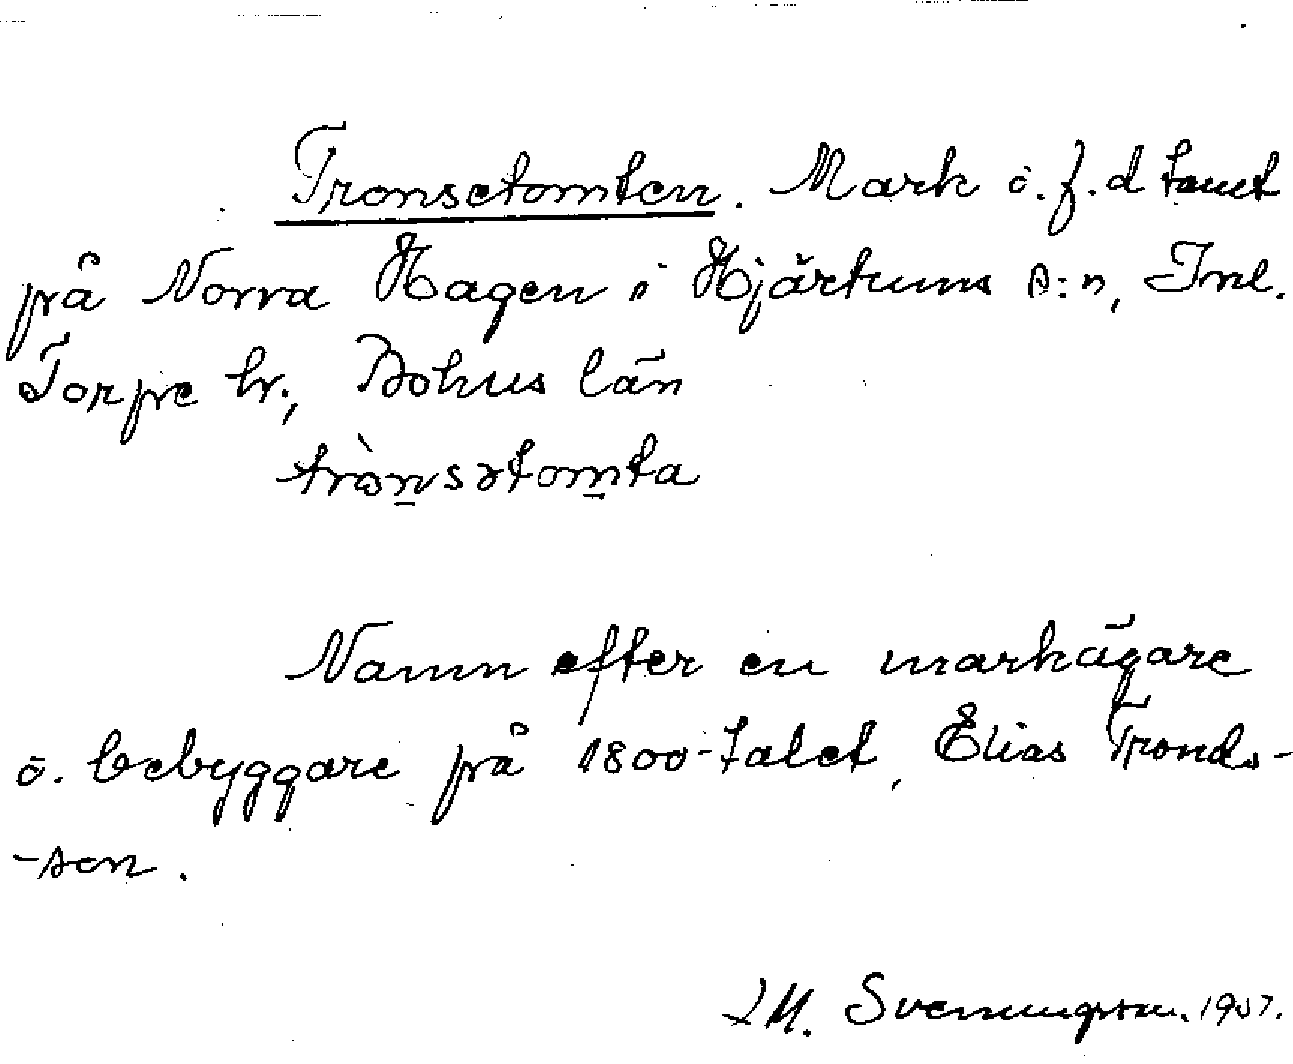 Tronsetomten. Mark o. f.d tomt
på Norra Hagen i Hjärtums s:n, Inl.
Torpe hr., Bohus län
trὼn̲sətom̲ta
Namn efter en markägare
o. bebyggare på 1800-talet, Elias Tronds-
-sen.
J M. Svenungsson. 1907.